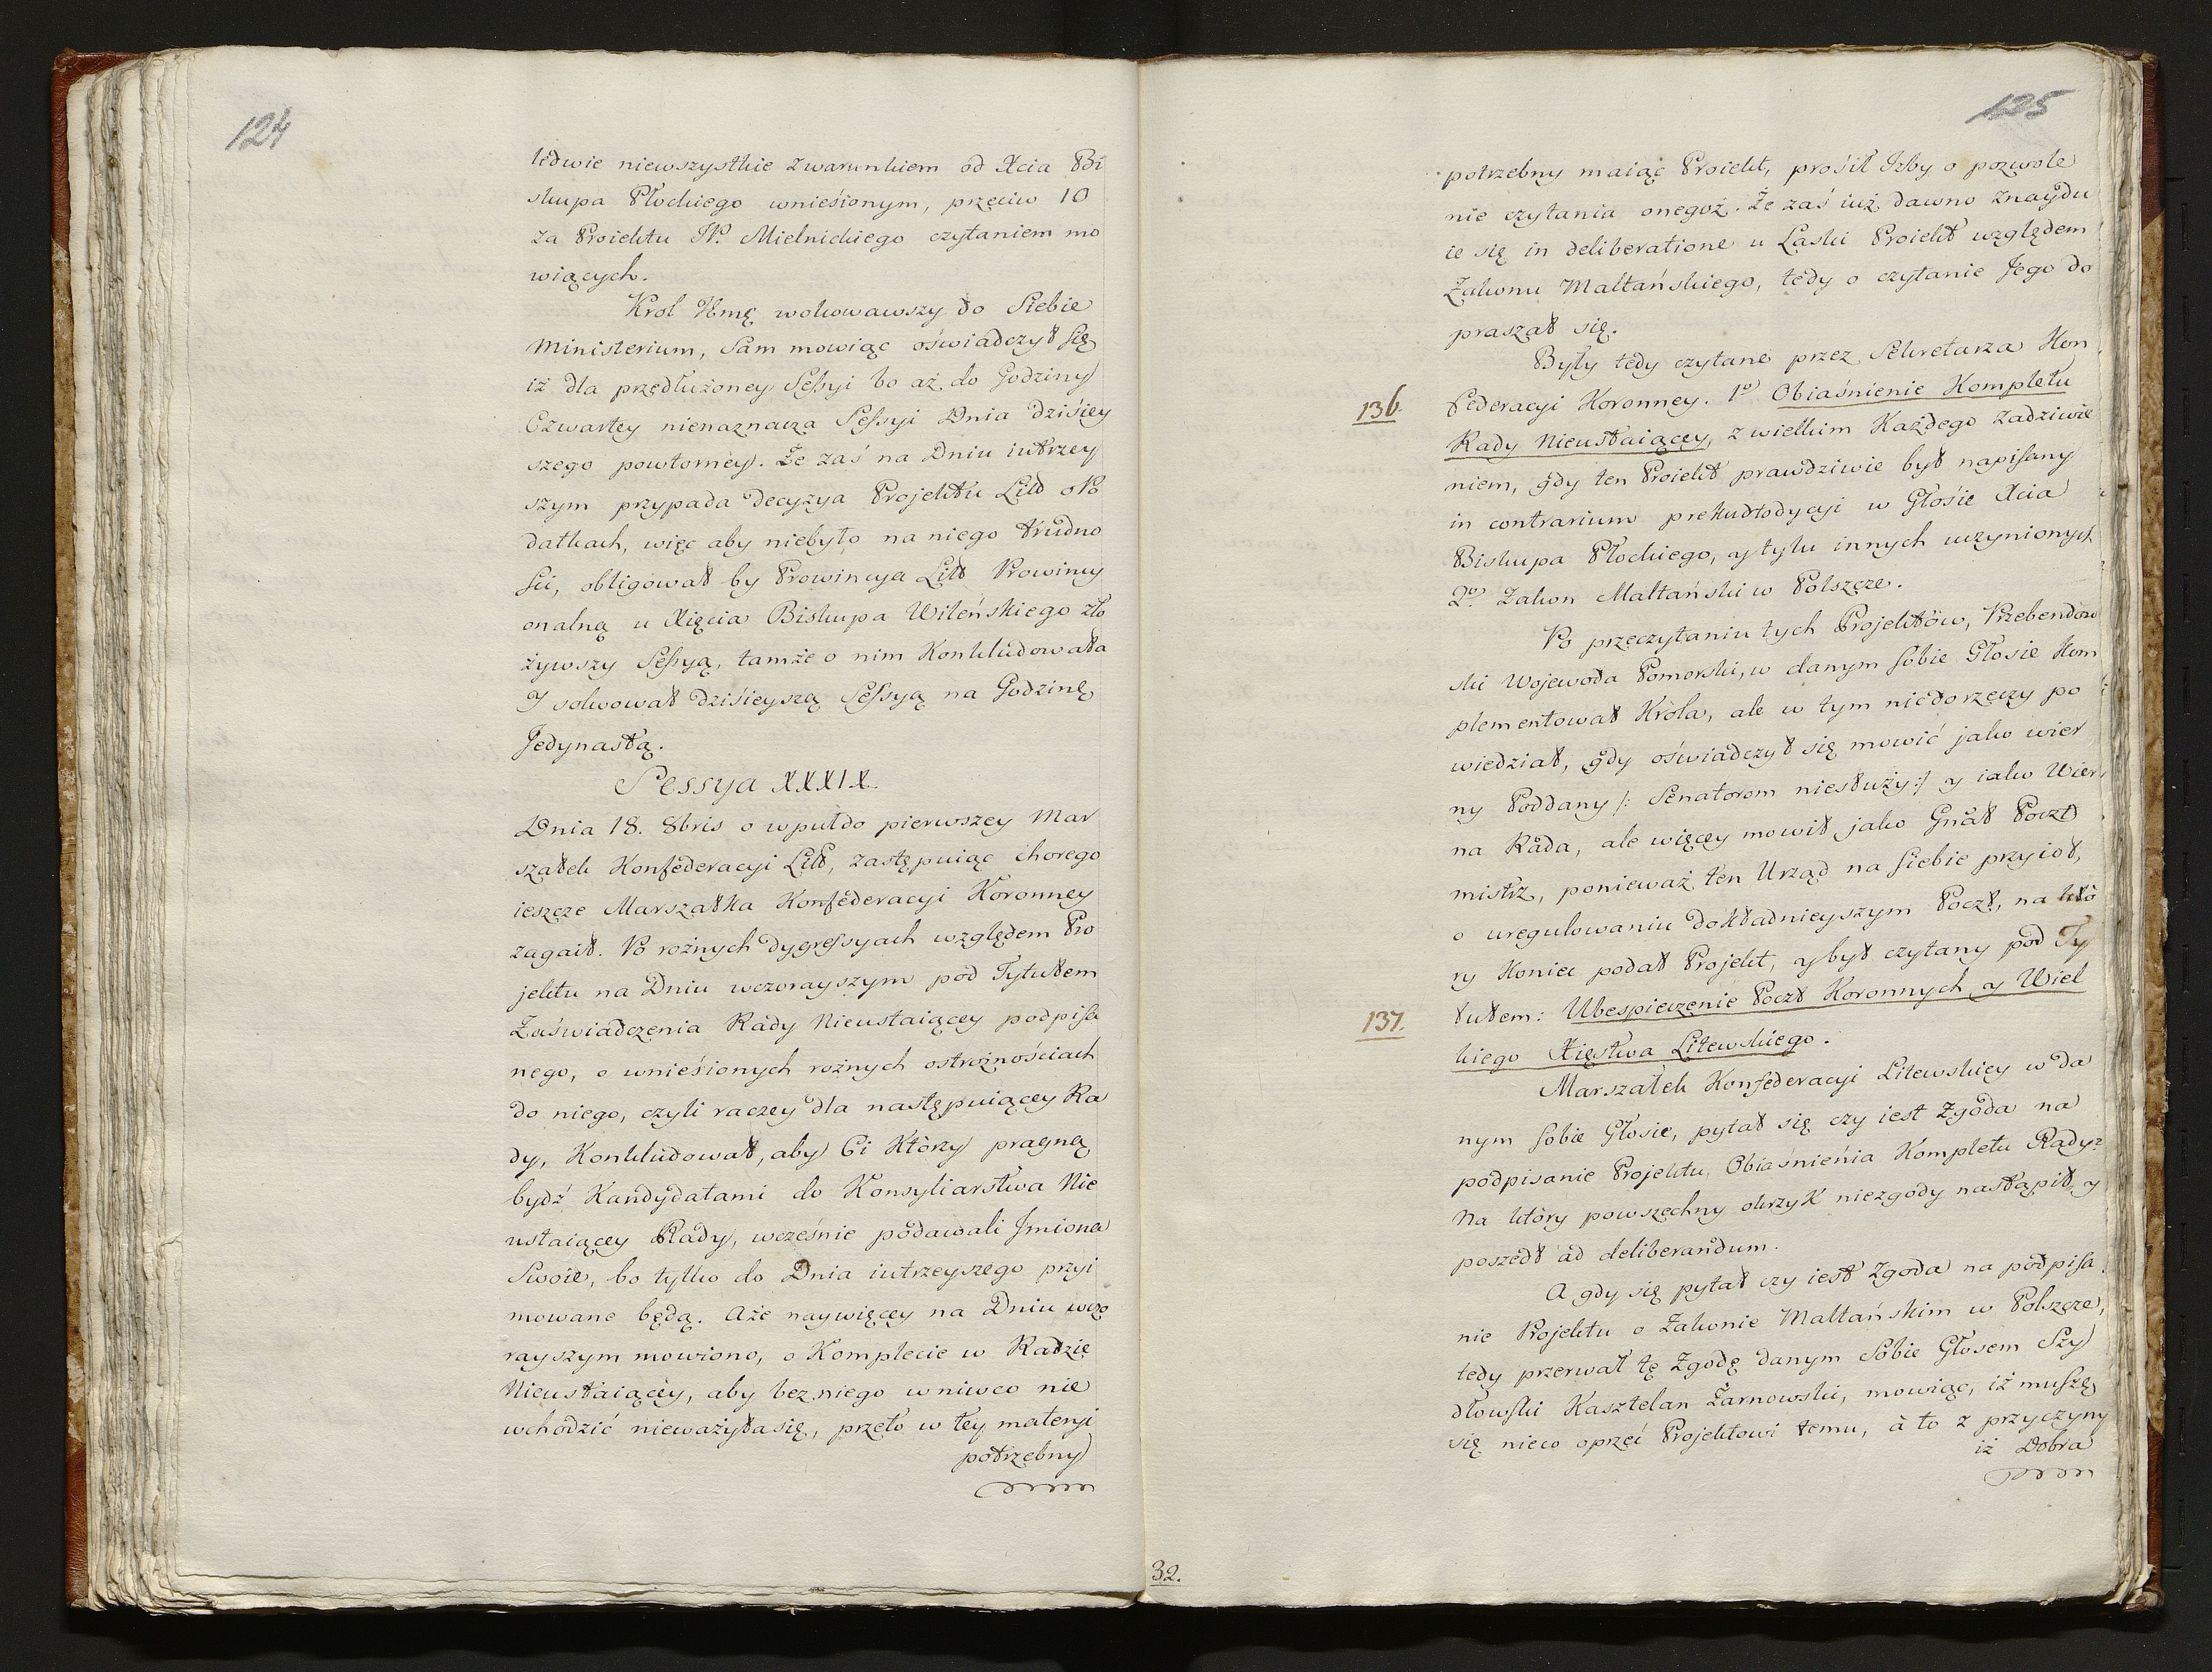 124
ledwie niewszystkie z warunkiem od Xcia Bi
skupa Płockiego wnieśionym, przeciw 10
za Proiektu JP. Mielnickiego czytaniem mo
wiących.
Krol Jmę wokowawszy do Siebie
Ministerium, Sam mowiąc oświadczył Się
iż dla przedłużoney Sessyi bo aż do Godziny
Czwartey nienaznacza Sessyi Dnia dziśiey
szego powtorney. Że zaś na Dniu iutrzey
szym przypada decyzya Projektu Litt o Po
datkach, więc aby niebyło na niego trudno
ści, obligował by Prowincya Litt Prowincy
onalną u Xięcia Biskupa Wileńskiego zło
żywszy Sessyą, tamże o nim Konkludowała
I solwował dziśieyszą Sessyą na Godzinę
Jedynastą.
Sessya XXXIX.
Dnia 18. 8bris o wpułdo pierwszey Mar
szałek Konfederacyi Litt, zastępuiąc chorego
ieszcze Marszałka Konfederacyi Koronney
zagaił. Po rożnych dygressyach względem Pro
jektu na Dniu wczorayszym pod Tytułem
Zaświadczenia Rady Nieustaiącey podpisa
nego, o wnieśionych rożnych ostrożnościach
do niego, czyli raczey dla następuiącey Ra
dy, Konkludował, aby Ci Którzy pragną
bydź Kandydatami do Konsyliarstwa Nie
ustaiącey Rady, wcześnie podawali Jmiona
Swoie, bo tylko do Dnia iutrzeyszego przyi
mowane będą. Aże naywięcey na Dniu wczo
rayszym mowiono, o Komplecie w Radzie
Nieustaiącey, aby bez niego w niwco nie
wchodzić nieważyła się, przeto w tey materyi
potrzebny
125
potrzebny maiąc Proiekt, prośił Izby o pozwole
nie czytania onegoż. Że zaś iuż dawno znaydu
ie się in deliberatione u Laski Proiekt względem
Zakonu Maltańskiego, tedy o czytanie Jego do
praszał się.
Były tedy czytane przez Sekretarza Kon
136. federacyi Koronney. 1º Obiaśnienie Kompletu
Rady Nieustaiącey, z wielkim Każdego zadziwie
niem, gdy ten Proiekt prawdziwie był napisany
in contrarium prekustodycyi w Głosie Xcia
Biskupa Płockiego, y tylu innych uczynionych
2º. Zakon Maltański w Polszcze.
Po przeczytaniu tych Projektów, Przebendow
ski Wojewoda Pomorski, w danym sobie Głosie kom
plementował Króla, ale w tym niedorzeczy po
wiedział, gdy oświadczył się mowić jako wier
ny Poddany /: Senatorom niesłuży :/ y iako Wier
na Rada, ale więcey mowił jako Gnał Poczt
mistrz, ponieważ ten Urząd na siebie przyioł,
o uregulowaniu dokładnieyszym Poczt, na któ
ry Koniec podał Projekt, y był czytany pod Ty
137. tułem: Ubespieczenie Poczt Koronnych y Wiel
kiego Xięstwa Litewskiego.
Marszałek Konfederacyi Litewskiey w da
nym sobie Głosie, pytał się czy iest Zgoda na
podpisanie Projektu Obiaśnienia Kompletu Rady?
Na który powszechny okrzyk niezgody nastąpił, y
poszedł ad deliberandum.
A gdy się pytał czy iest Zgoda na podpisa
nie Projektu o Zakonie Maltańskim w Polszcze,
tedy przerwał tę Zgodę danym sobie Głosem Szy
dłowski Kasztelan Żarnowski, mowiąc, iż muszę
się nieco oprzeć Projektowi temu, a to z przyczyny
iż Dobra
32.